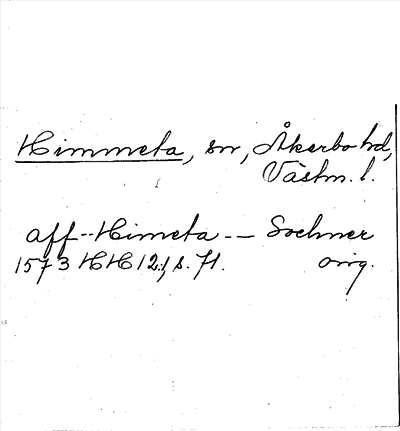 Himmeta, sn, Åkerbo hd,
Västm. l.
aff -- Himeta -- Sochner
1573 HH 12:1, s. 71. orig.